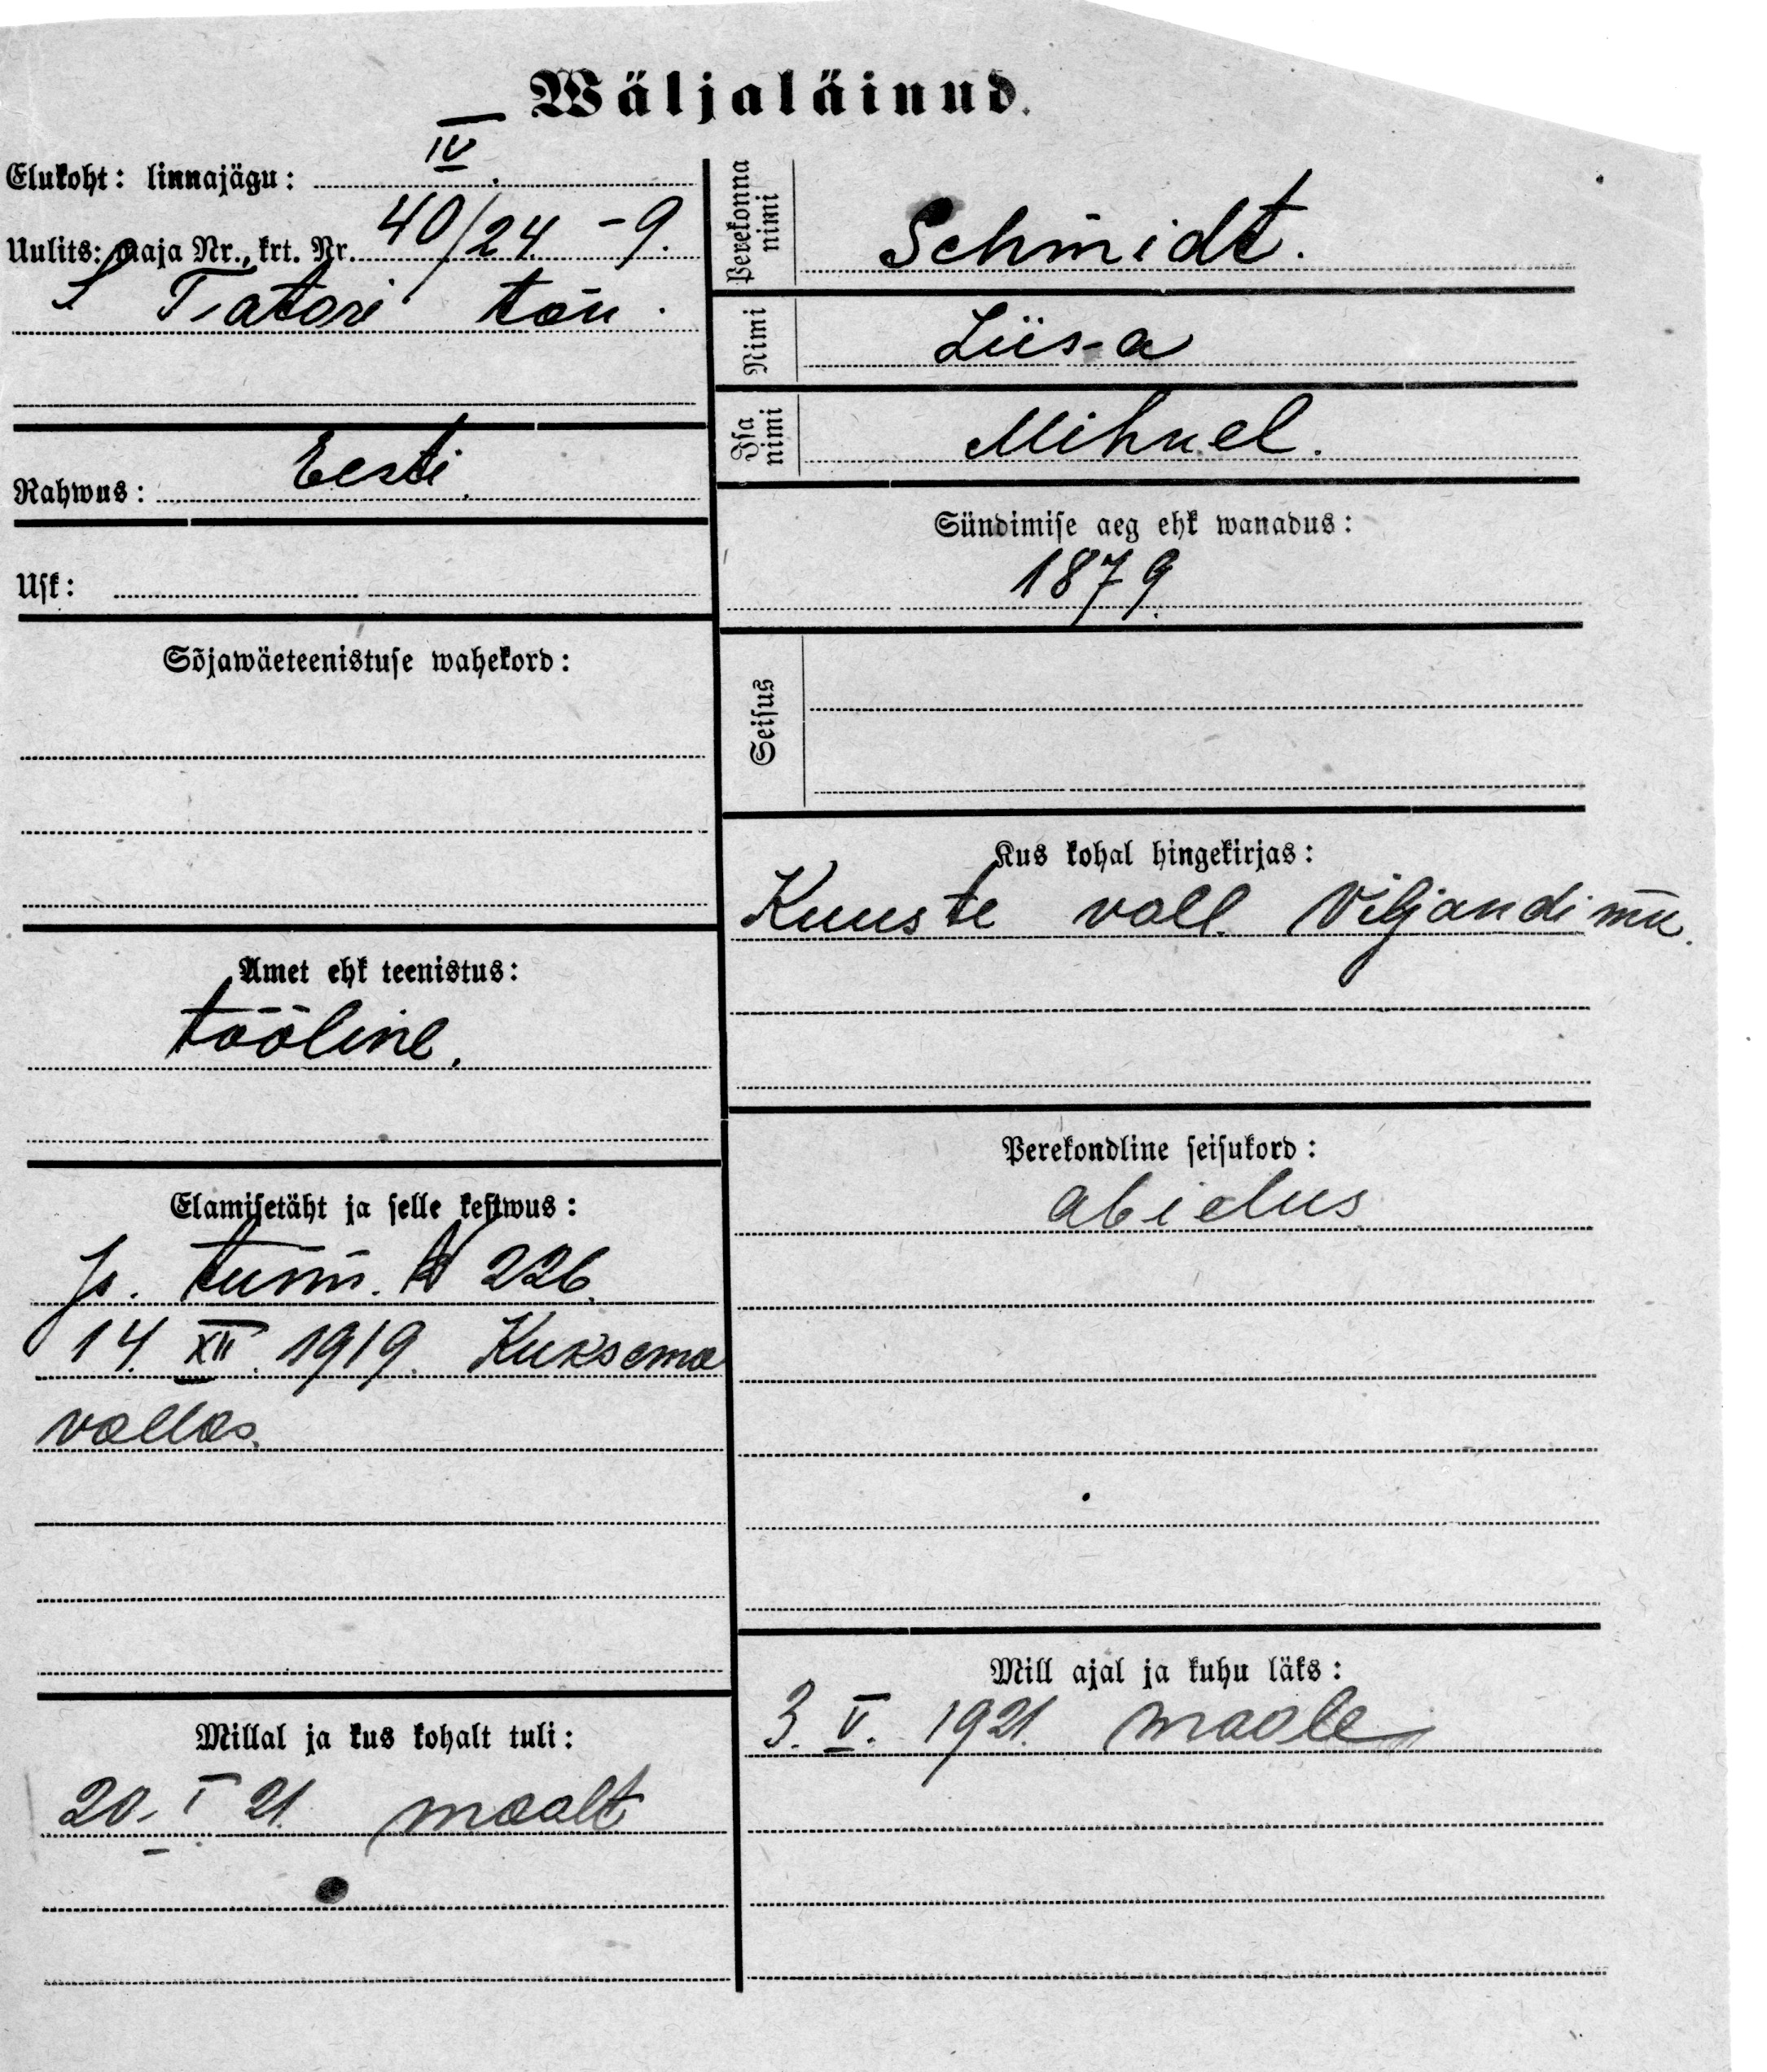 Wäljaläinud.
Elukoht: linnajägu: IV.
Uulits: maja Nr., krt. Nr. 40/24. -9.
Tatari tän.
Rahwus: Eesti.
Usk:
Sõjawäeteenistuse wahekord:
Amet ehk teenistus:
tööline.
Elamisetäht ja selle kestwus:
Is. tunn. № 226.
14. XII. 1919. Kuksema
vallas.
Millal ja kus kohalt tuli:
20. I 21. maalt
Perekonna nimi Schmidt.
Nimi Liisa
Isa nimi Mihkel.
Sündimise aeg ehk wanadus:
1879.
Seisus
Kus kohal hingekirjas:
Kuuste vall. Viljandi mk.
Perekondline seisukord:
abielus
Mill ajal ja kuhu läks:
3. V. 1921. maale